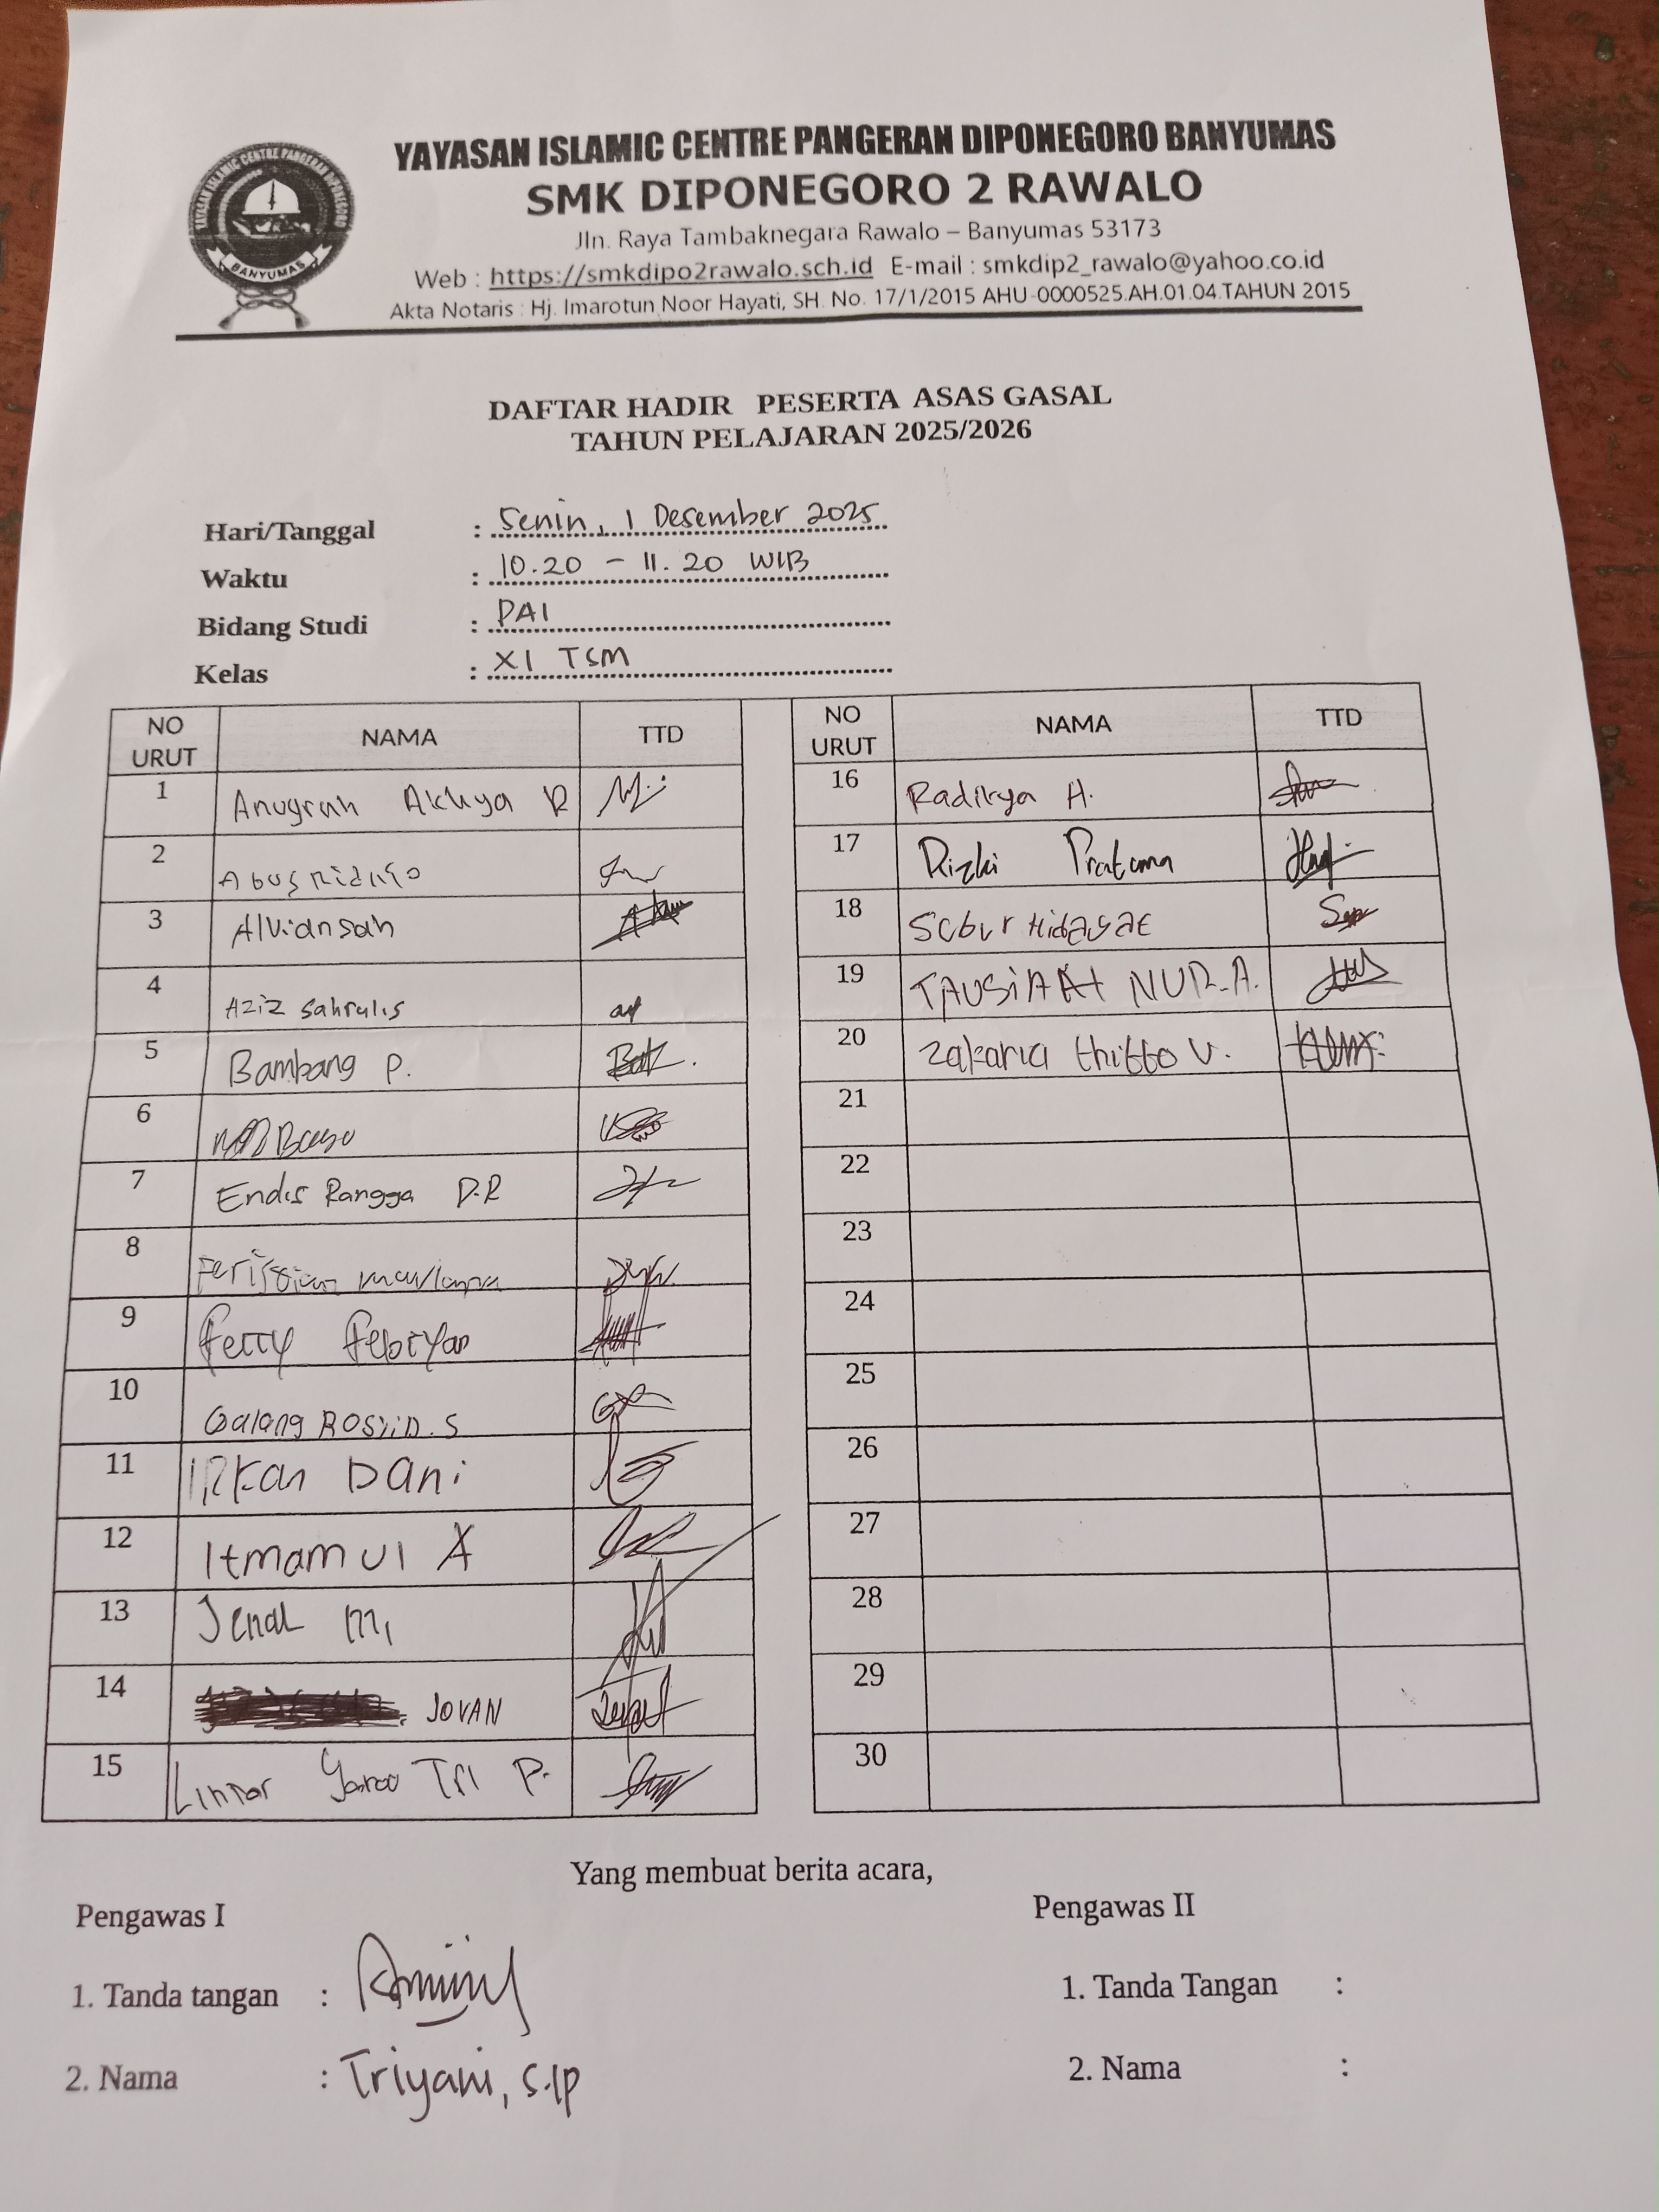 YAYASAN ISLAMIC CENTRE PANGERAN DIPONEGORO
BANYUMAS
YAYASAN ISLAMIC CENTRE PANGERAN DIPONEGORO BANYUMAS
SMK DIPONEGORO 2 RAWALO
Jln. Raya Tambaknegara Rawalo – Banyumas 53173
Web : https://smkdipo2rawalo.sch.id E-mail : smkdip2_rawalo@yahoo.co.id
Akta Notaris : Hj. Imarotun Noor Hayati, SH. No. 17/1/2015 AHU-0000525.AH.01.04.TAHUN 2015
DAFTAR HADIR PESERTA ASAS GASAL
TAHUN PELAJARAN 2025/2026
Hari/Tanggal : Senin, 1 Desember 2025
Waktu : 10.20 – 11.20 WIB
Bidang Studi : PAI
Kelas : XI TSM
NO URUT NAMA TTD
1 Anugrah Akhya R
2
3 Alviansah
4 Aziz Sahrulis
5 Bambang P.
6
7 Endis Rangga D.R
8 maulana
9 Ferry Febryan
10 Galang Rosyid. S
11 Dani
12 Itmamul A
13 Jenal M,
14 JOVAN
15 Tri P.
NO URUT NAMA TTD
16 Raditya H.
17 Rizki Pratama
18 Hidayat
19 NUR.A.
20 Zakaria V.
21
22
23
24
25
26
27
28
29
30
Yang membuat berita acara,
Pengawas I
1. Tanda tangan :
2. Nama : Triyani, S.IP
Pengawas II
1. Tanda Tangan :
2. Nama :